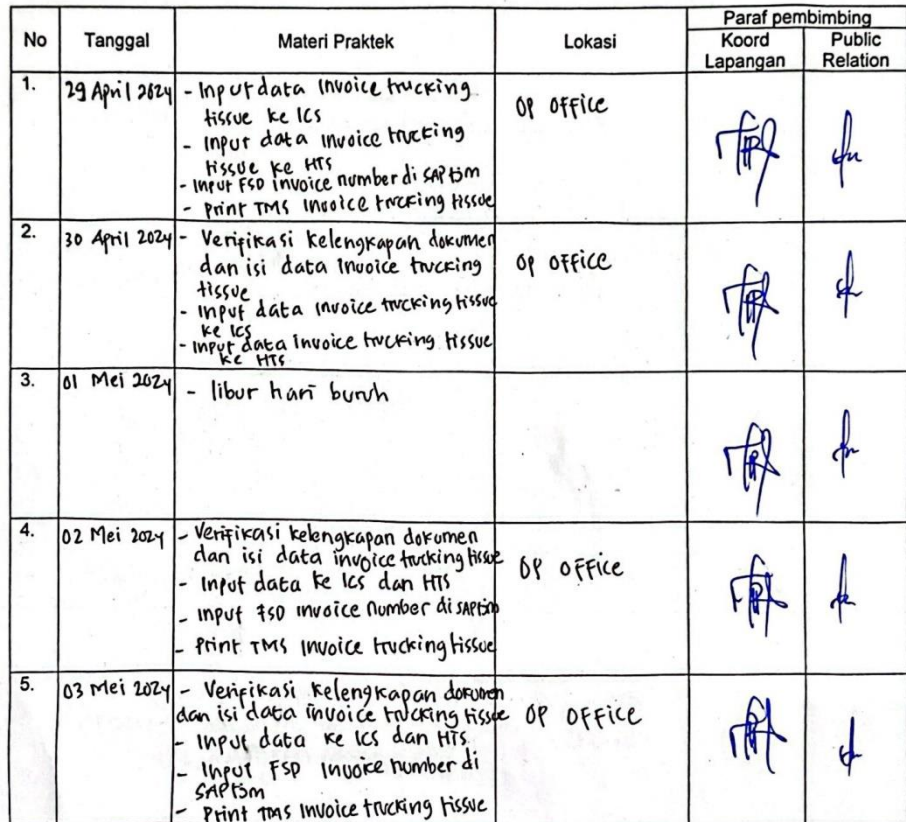 No Tanggal Materi Praktek Lokasi Paraf pembimbing
Koord Lapangan Public Relation
1. 29 April 2024 - Input data Invoice trucking
tissue ke Ics
- Input data Invoice trucking
tissue ke HTS
- Input FSD invoice number di SAP
- Print TMS Invoice trucking tissue
OP OFFICE
2. 30 April 2024 - Verifikasi Kelengkapan dokumen
dan isi data Invoice trucking
tissue
- Input data Invoice trucking tissue
ke Ics
- Input data Invoice trucking tissue
ke HTS
OP OFFICE
3. 01 Mei 2024 - libur hari buruh
4. 02 Mei 2024 - Verifikasi kelengkapan dokumen
dan isi data invoice trucking tissue
- Input data ke Ics dan HTS
- Input FSD invoice number di SAP
- Print TMS Invoice trucking tissue
OP OFFICE
5. 03 Mei 2024 - Verifikasi Kelengkapan dokumen
dan isi data invoice trucking tissue
- Input data ke Ics dan HTS
- Input FSD Invoice number di
SAP
- Print TMS Invoice trucking tissue
OP OFFICE